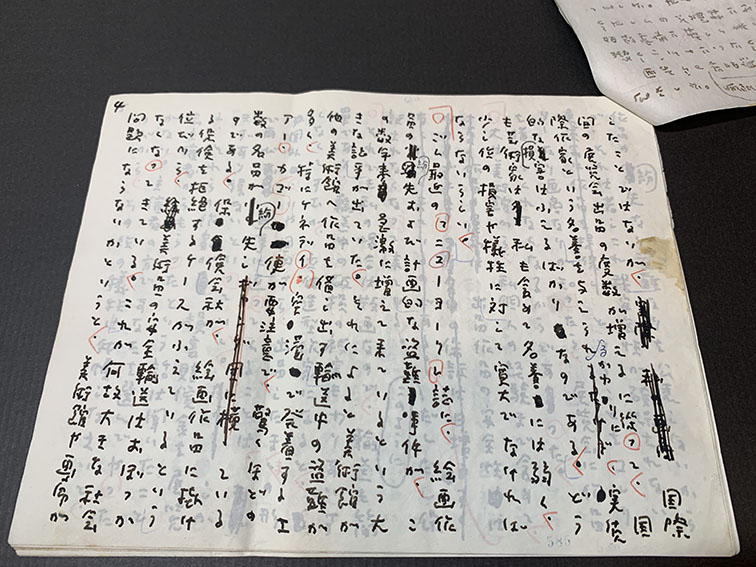 4
したことではないが、 国際
間の展覧会出品の度数が増えるに従って、国
際作家という名誉を与えられるかわりに、実質
的な損害はふえるばかりなのである。どう
も芸術家は私も含めて名誉には弱く、
少し位の損害や犠牲に対して寛大でなければ
ならないらしい。
ごく最近のニューヨーク誌に、絵画作
品の紛失および計画的な盗難事件が、こ
の数年来急激に増えて来ているという大
きな記事が出ていた。それによると美術館が
他の美術館へ作品を借し出す輸送中の盗難が
多く、特にケネディー空港で発着するエ
アーカゴー便が要注意で、驚くほどの
数の名品が紛失し ている
そうである。保険会社が、絵画作品に掛け
る保険を拒絶するケースがふえているという
位だから、美術品の安全輸送はおぼつか
なくなってきている。これが何故大きな社会
問題にならないかというと、美術館や画商が